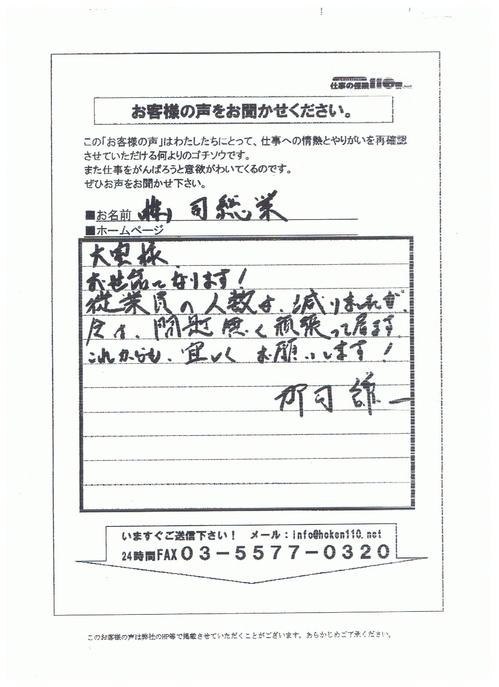 仕事の保険110番.net
お客様の声をお聞かせください。
この「お客様の声」はわたしたちにとって、仕事への情熱とやりがいを再確認
させていただける何よりのゴチソウです。
また仕事をがんばろうと意欲がわいてくるのです。
ぜひお声をお聞かせ下さい。
■お名前 (株) 司総業
■ホームページ
大里様
お世話になります!
従業員の人数は、減りましたが、
今は、問題無く頑張って居ます。
これからも、宜しくお願いします!
郡司雄一
いますぐご送信下さい! メール:info@hoken110.net
24時間FAX03-5577-0320
このお客様の声は弊社のHP等で掲載させていただくことがございます。あらかじめご了承ください。